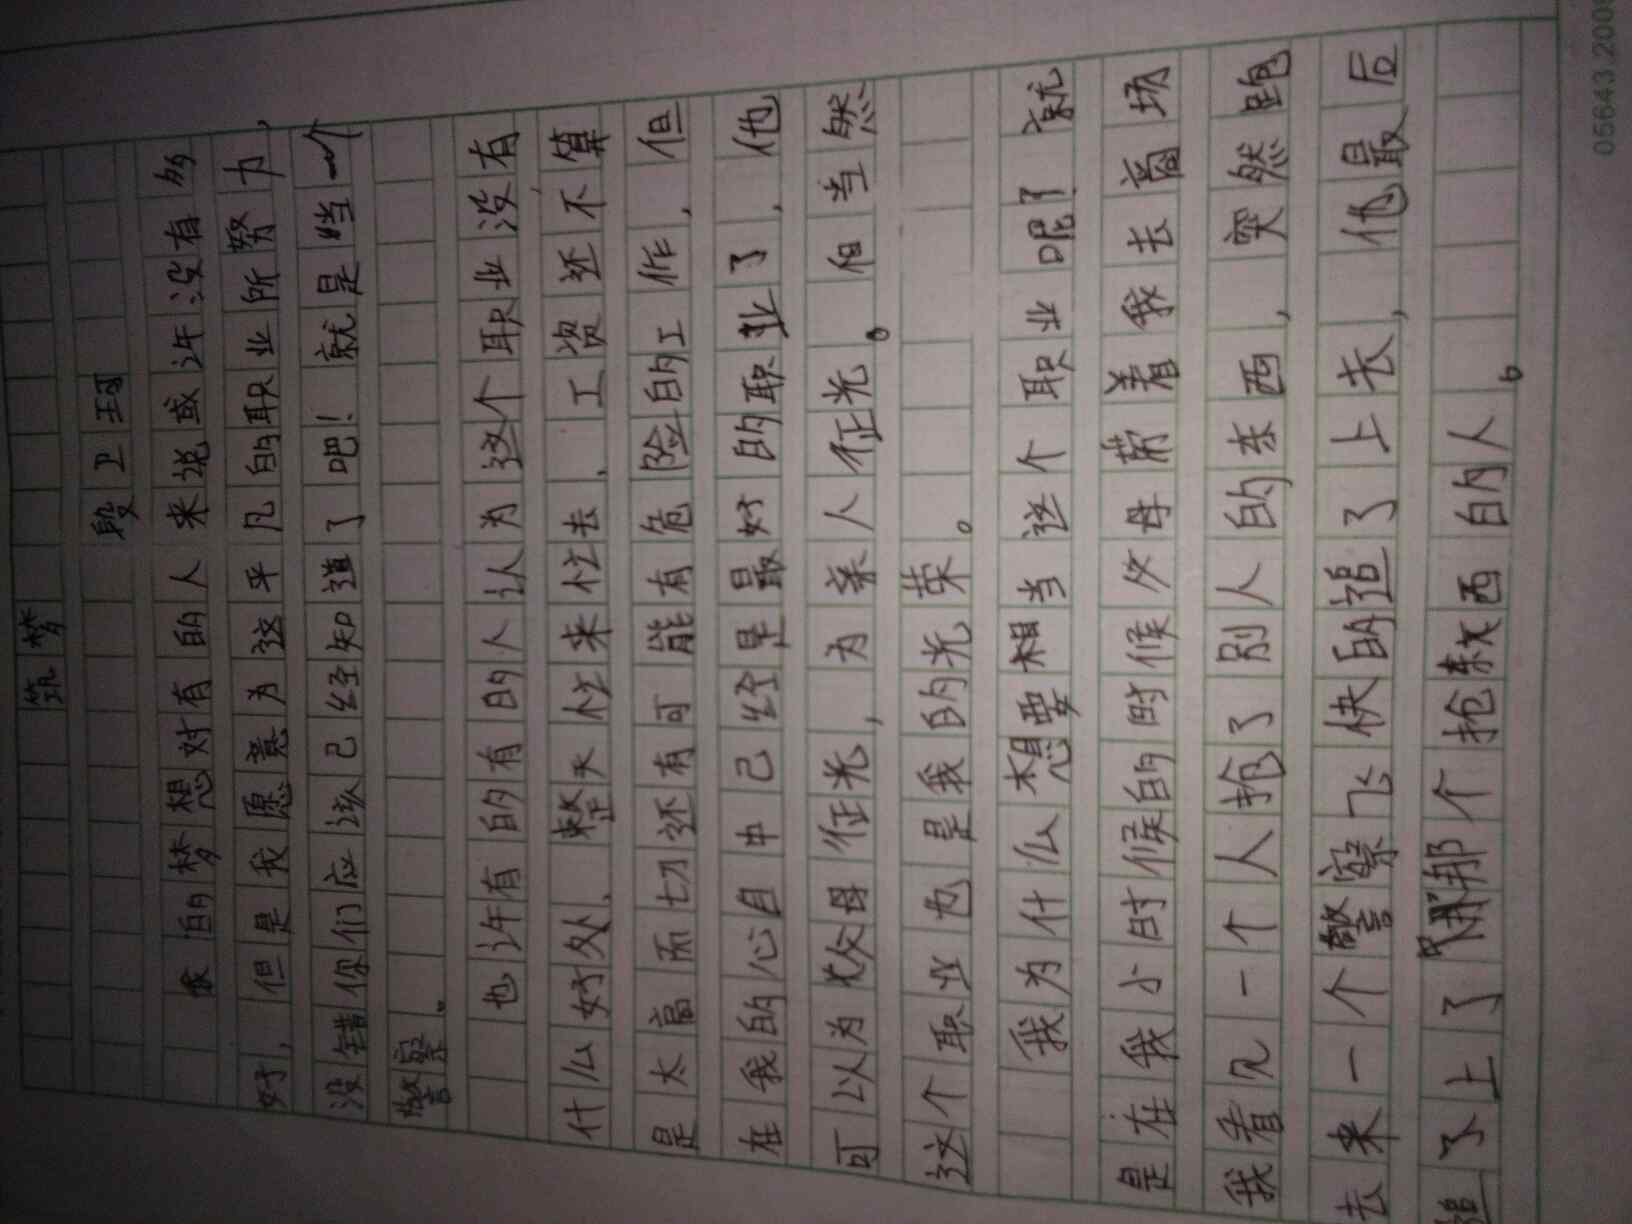 筑梦
段卫珂
我的梦想对有的人来说或许没有多
好，但是我愿意为这平凡的职业所努力，
没错你们应该已经知道了吧！就是当一个
警察。
也许有的有的人认为这个职业没有
什么好处、整天忙来忙去、工资还不算
是太高而切还有可能有危险的工作，但
在我的心目中已经是最好的职业了，他
可以为父母征光，为亲人征光。但当然
这个职业也是我的光荣。
我为什么想要想当这个职业呢？就
是在我小时候的时候父母带着我去商场
我看见一个人抢了别人的东西，突然跑
去来一个警察飞快的追了上去，他最后
追了上了那个抢东西的人。
05643.2009